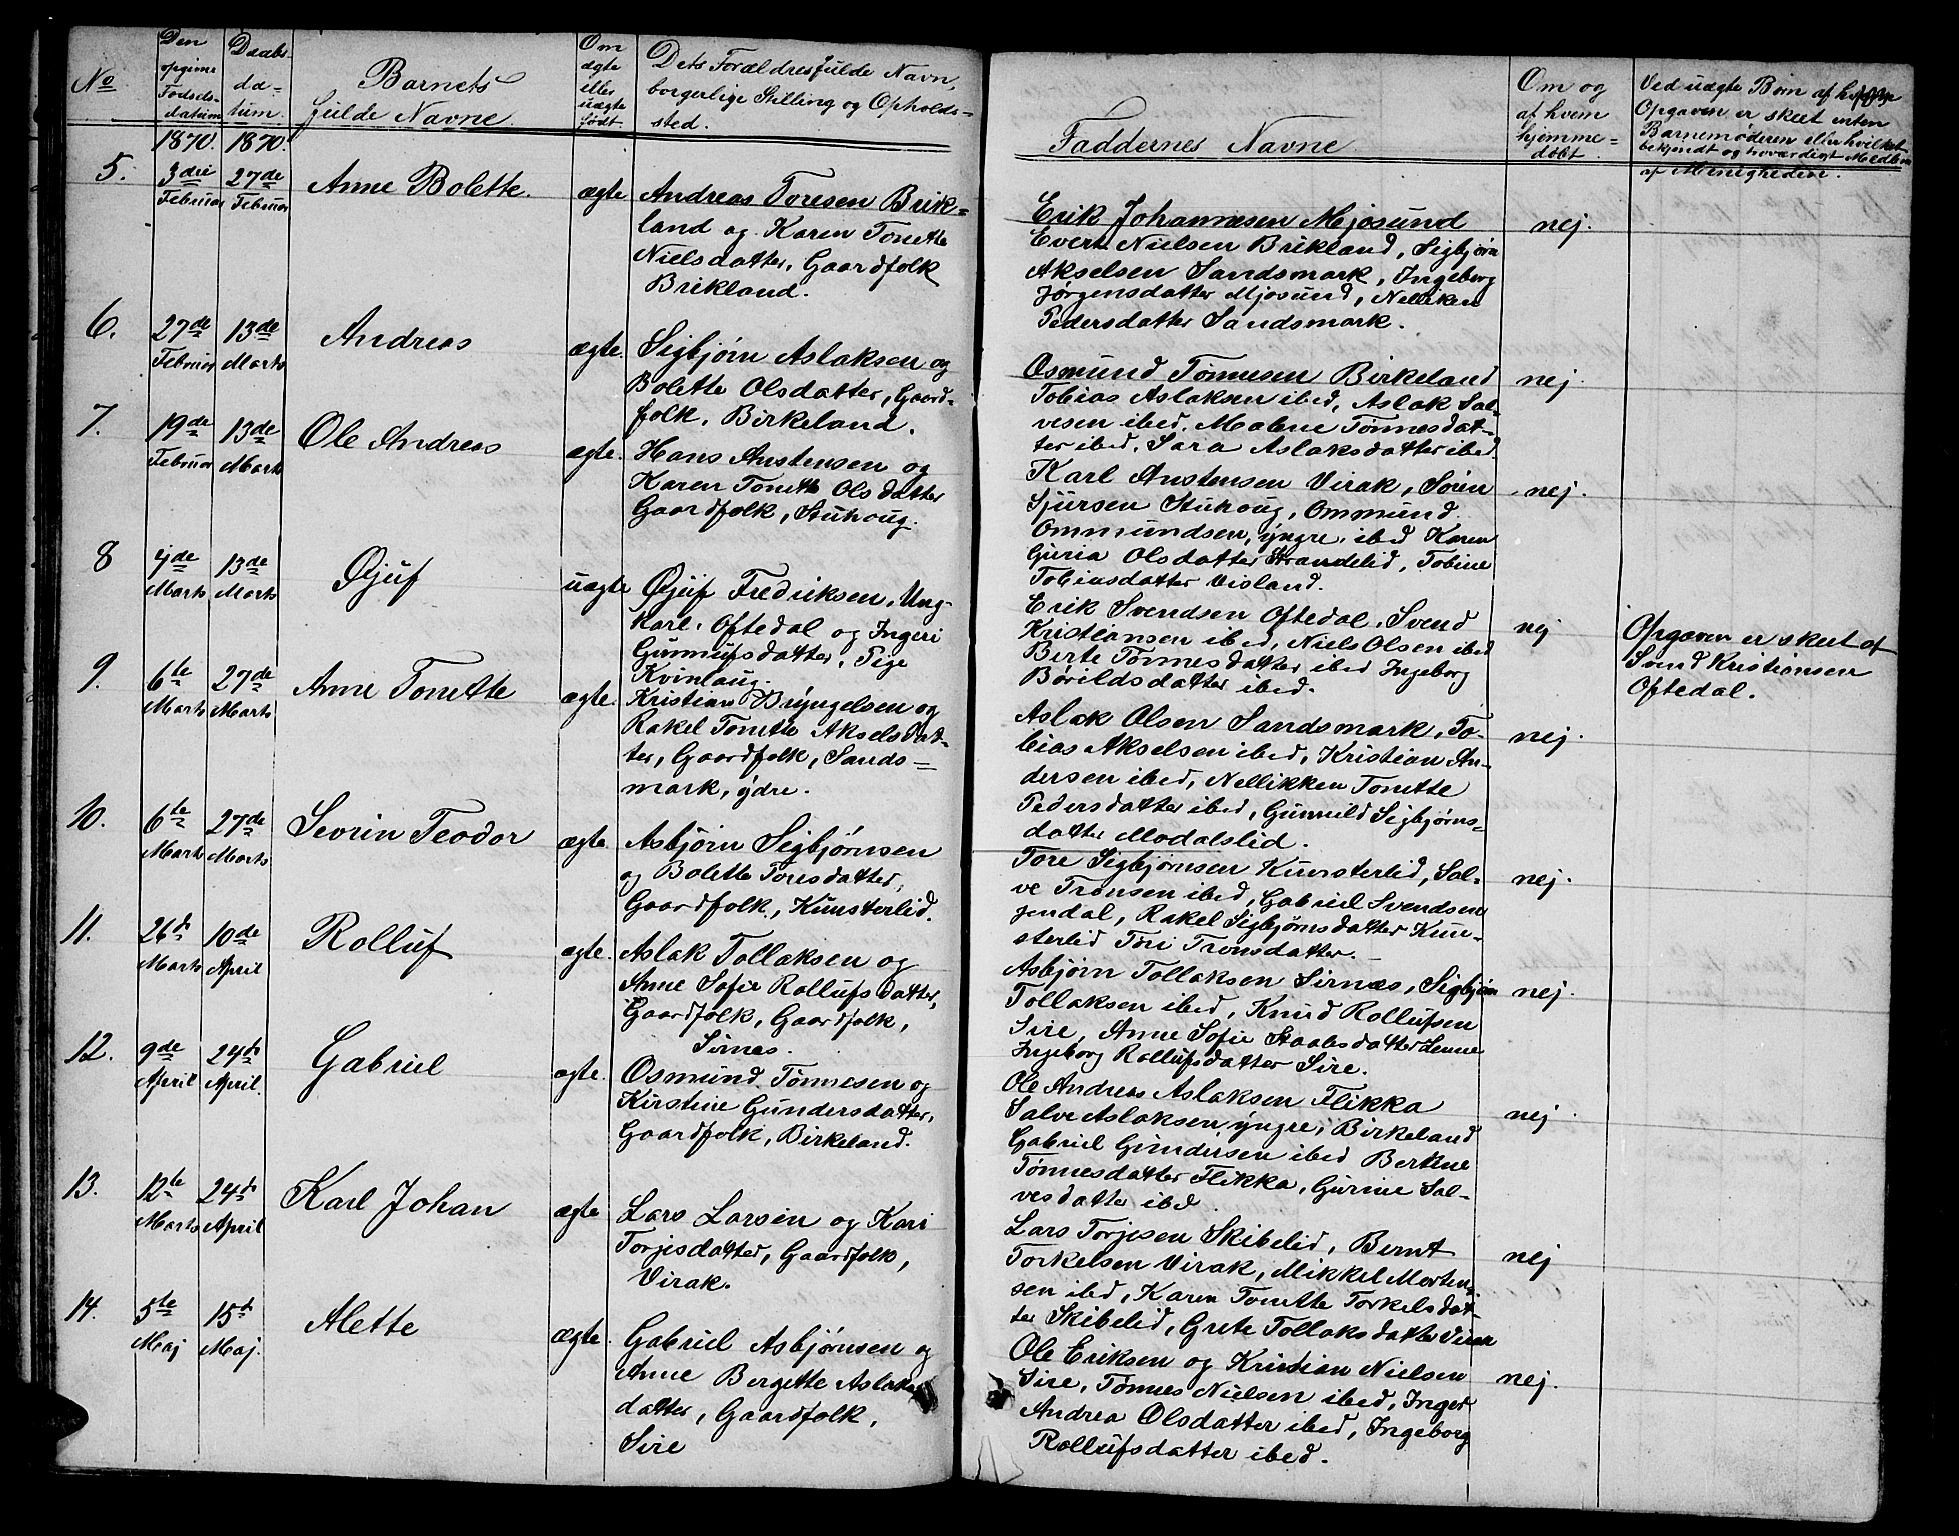 No
Den
opgivne
Fødsels-
datum
Daabs-
da-
tum.
Barnets
fulde Navne.
Om
ægte
eller
uægte
født.
Dets Forældres fulde Navn,
borgerlige Stilling og Opholds-
sted.
Faddernes Navne
Om og
af hvem
hjemme-
døbt.
Ved uægte Børn af hvem
Opgaven er skeet enten
Barnemoderen eller hvilket
bekjendt og troværdigt Medlem
af Menigheden.
1870. 1870.
5.
3die
Februar
27de
Februar
Anne Bolette.
ægte
Andreas Toresen Brik-
land og Karen Tonette
Nielsdatter, Gaardfolk
Brikland.
Erik Johannesen Mjosund
Evert Nielsen Brikland, Sigbjørn
Akselsen Sandsmark, Ingeborg
Jørgensdatter Mjosund, Nelliken
Pedersdatter Sandsmark.
nej.
6.
27de
Februar
13de
Marts
Andreas
ægte.
Sigbjørn Aslaksen og
Bolette Olsdatter, Gaard-
folk, Birkeland.
Osmund Tønnesen Birkeland
Tobias Aslaksen ibed, Aslak Sal-
vesen ibed, Malene Tønnesdat-
ter ibed, Sara Aslaksdatter ibed
nej.
7.
19de
Februar
13de
Marts
Ole Andreas
ægte.
Hans Anstensen og
Karen Tonette Olsdatter
Gaardfolk, Stuhoug.
Karl Anstensen Virak, Søren
Sjursen Stuhoug, Ommund
Ommundsen, yngre, ibed Karen
Guria Olsdatter Strandelid, Tobine
Tobiasdatter Visland.
nej.
8
4de
Marts
13de
Marts
Øjuf
uægte
Øjuf Fredriksen, Ung-
karl, Oftedal og Ingeri
Gunnufsdatter, Pige
Kvinlaug.
Erik Svendsen Oftedal, Svend
Kristiansen ibed, Niels Olsen ibed
Birte Tønnesdatter ibed Ingeborg
Børildsdatter ibed.
nej
Opgaven er skeet af
Svend Kristiansen
Oftedal.
9.
6te
Marts
27de
Marts
Anne Tonette
ægte.
Kristian Bryngelsen og
Rakel Tonette Akselsdat-
ter, Gaardfolk, Sands-
mark, ydre.
Aslak Olsen Sandsmark, To-
bias Akselsen ibed, Kristian An-
dersen ibed, Nellikken Tonette
Pedersdatter ibed, Gunuld Sigbjørns-
datter Modalslid.
nej.
10.
6te
Marts
27de
Marts
Sevrin Teodor
ægte
Asbjørn Sigbjørnsen
og Bolette Toresdatter,
Gaardfolk, Kunsterlid.
Tore Sigbjørnsen Kunsterlid, Sal-
ve Tronsen ibed, Gabriel Svendsen
jendal, Rakel Sigbjørnsdatter Kun-
sterlid Tori Tronsdatter.
nej.
11.
26d
Marts
10de
April
Rolluf
ægte.
Aslak Tollaksen og
Anne Sofie Rollufsdatter,
Gaardfolk, Gaardfolk,
Sirnes.
Asbjørn Tollaksen Sirnæs, Sigbjørn
Tollaksen ibed, Knud Rollufsen
Sire, Anne Sofie Staalesdatter Lenne
Ingeborg Rollufsdatter Sire.
nej.
12.
9de
April
24d
April.
Gabriel
ægte.
Osmund Tønnesen og
Kirstine Gundersdatter,
Gaardfolk, Birkeland.
Ole Andreas Aslaksen Flikka
Salve Aslaksen yngre, Birkeland
Gabriel Gundersen ibed Bertine
Tønnesdatter Flikka, Gurine Sal-
vesdatte ibed.
nej.
13.
12te
Marts
24d
April
Karl Johan
ægte
Lars Larsen og Kari
Torjisdatter, Gaardfolk,
Virak.
Lars Torjesen Skibelid, Bernt
Torkelsen Virak, Mikkel Morten-
sen ibed, Karen Tonette Torkelsdat-
ter Skibelid, Grete Tollaksdatter Virak
nej
14.
5te
Maj
15d
Maj.
Alette
ægte.
Gabriel Asbjørnsen og
Anne Bergette Aslaks
datter, Gaardfolk,
Sire
Ole Eriksen og Kristian Nielsen
Sire, Tønnes Nielsen ibed, Inger
Andrea Olsdatter ibed, Ingeborg
Rollufsdatter ibed.
nej.